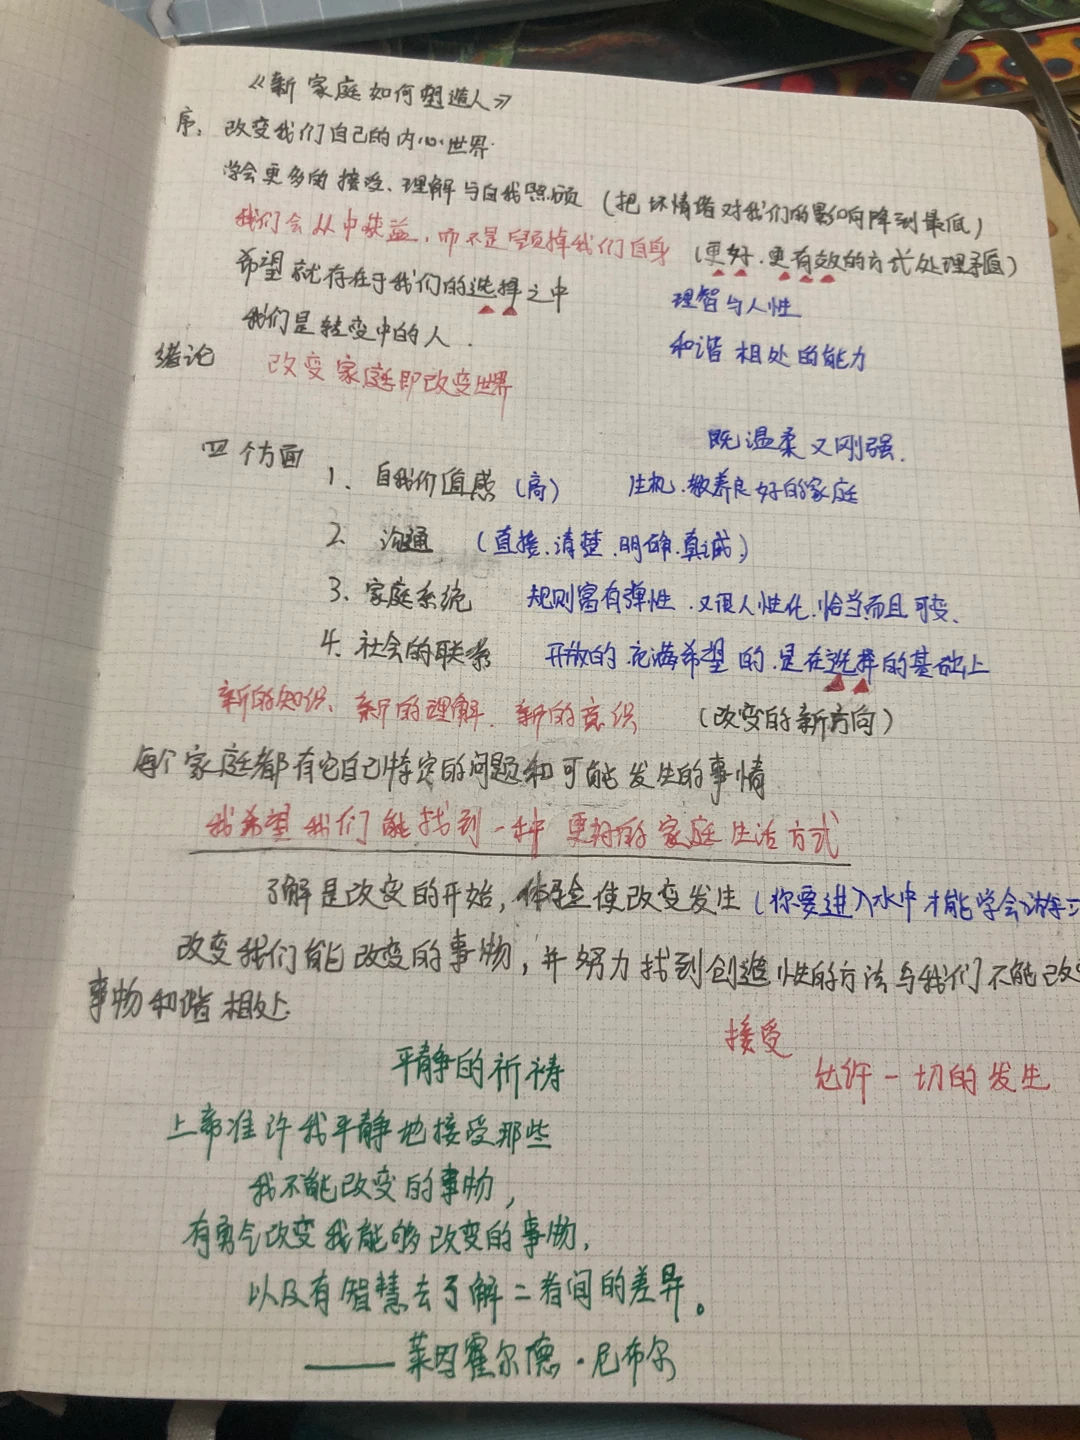 《新家庭如何塑造人》
序: 改变我们自己的内心世界.
学会更多的接受、理解与自我照顾 (把坏情绪对我们的影响降到最低)
我们会从中获益,而不是毁掉我们自身 (更好.更有效的方式处理矛盾)
希望就存在于我们的选择之中 理智与人性
我们是转变中的人. 和谐相处的能力
绪论 改变家庭即改变世界
既温柔又刚强.
四个方面 1、自我价值感 (高) 生机.教养良好的家庭
2. 沟通 (直接.清楚.明确.真诚)
3、家庭系统 规则富有弹性.又很人性化.恰当而且可变.
4. 社会的联系 开放的.充满希望的.是在选择的基础上
新的知识、新的理解.新的意识 (改变的新方向)
每个家庭都有它自己特定的问题和可能发生的事情
我希望我们能找到一种更好的家庭生活方式
了解是改变的开始,体验使改变发生 (你要进入水中才能学会游泳
改变我们能改变的事物,并努力找到创造性的方法与我们不能改变
事物和谐相处.
接受
允许一切的发生
平静的祈祷
上帝准许我平静地接受那些
我不能改变的事物,
有勇气改变我能够改变的事物,
以及有智慧去了解二者间的差异。
——莱因霍尔德·尼布尔